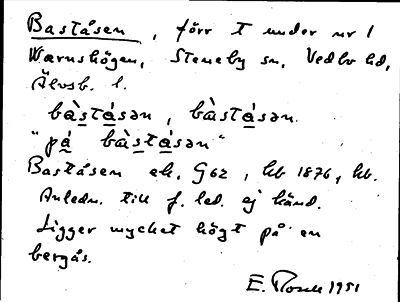 Baståsen, förr t under nr 1
Wærnshögen, Steneby sn, Vedbo hd,
Älvsb. l.
bàstásən, bàstásən.
"på bàstásən"
Baståsen ek, G62, hb 1876, hb.
Anledn. till f. led. ej känd.
Ligger mycket högt på en
bergås.
E. 1951